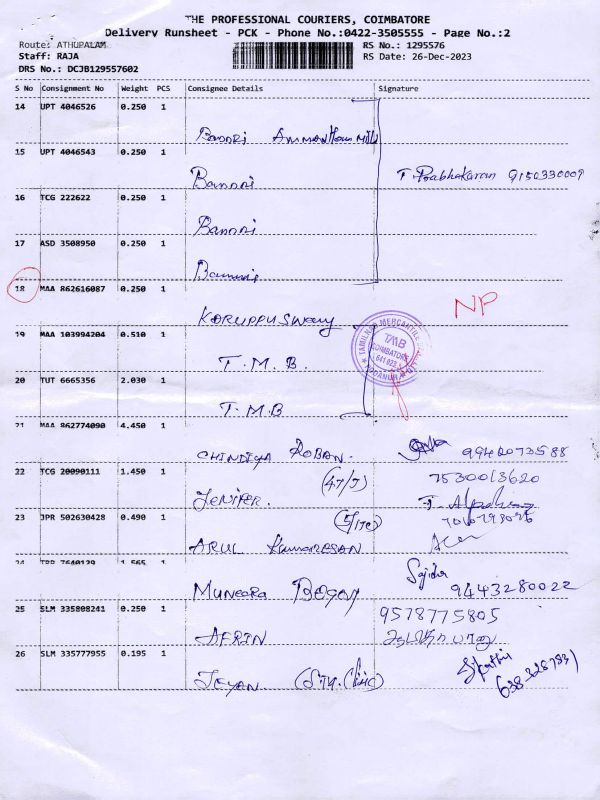 THE PROFESSIONAL COURIERS, COIMBATORE
Delivery Runsheet - PCK - Phone No.:0422-3505555 - Page No.:2
Route: ATHUPALAM RS No.: 1295576
Staff: RAJA RS Date: 26-Dec-2023
DRS No.: DCJB129557602
S No Consignment No Weight PCS Consignee Details Signature
14 UPT 4046526 0.250 1
Bannari Amman
15 UPT 4046543 0.250 1
Bannari T. Prabhakaran 9150330009
16 TCG 222622 0.250 1
Bannari
17 ASD 3508950 0.250 1
Bannari
18 MAA 862616087 0.250 1
Karuppuswamy NP
19 MAA 103994204 0.510 1
T.M.B.
TAMILNAD MERCANTILE
TMB
COIMBATORE
20 TUT 6665356 2.030 1
T.M.B
21 MAA 862774090 4.450 1
9942073588
22 TCG 20090111 1.450 1
Jenifer. (47/J) 7530013620
23 JPR 502630428 0.490 1
Arul Kumaresan
24 1.565 1
Muneera Begam Sajitha 9443280022
25 SLM 335808241 0.250 1 9578775805
AFRIN
26 SLM 335777955 0.195 1
Jeyan.